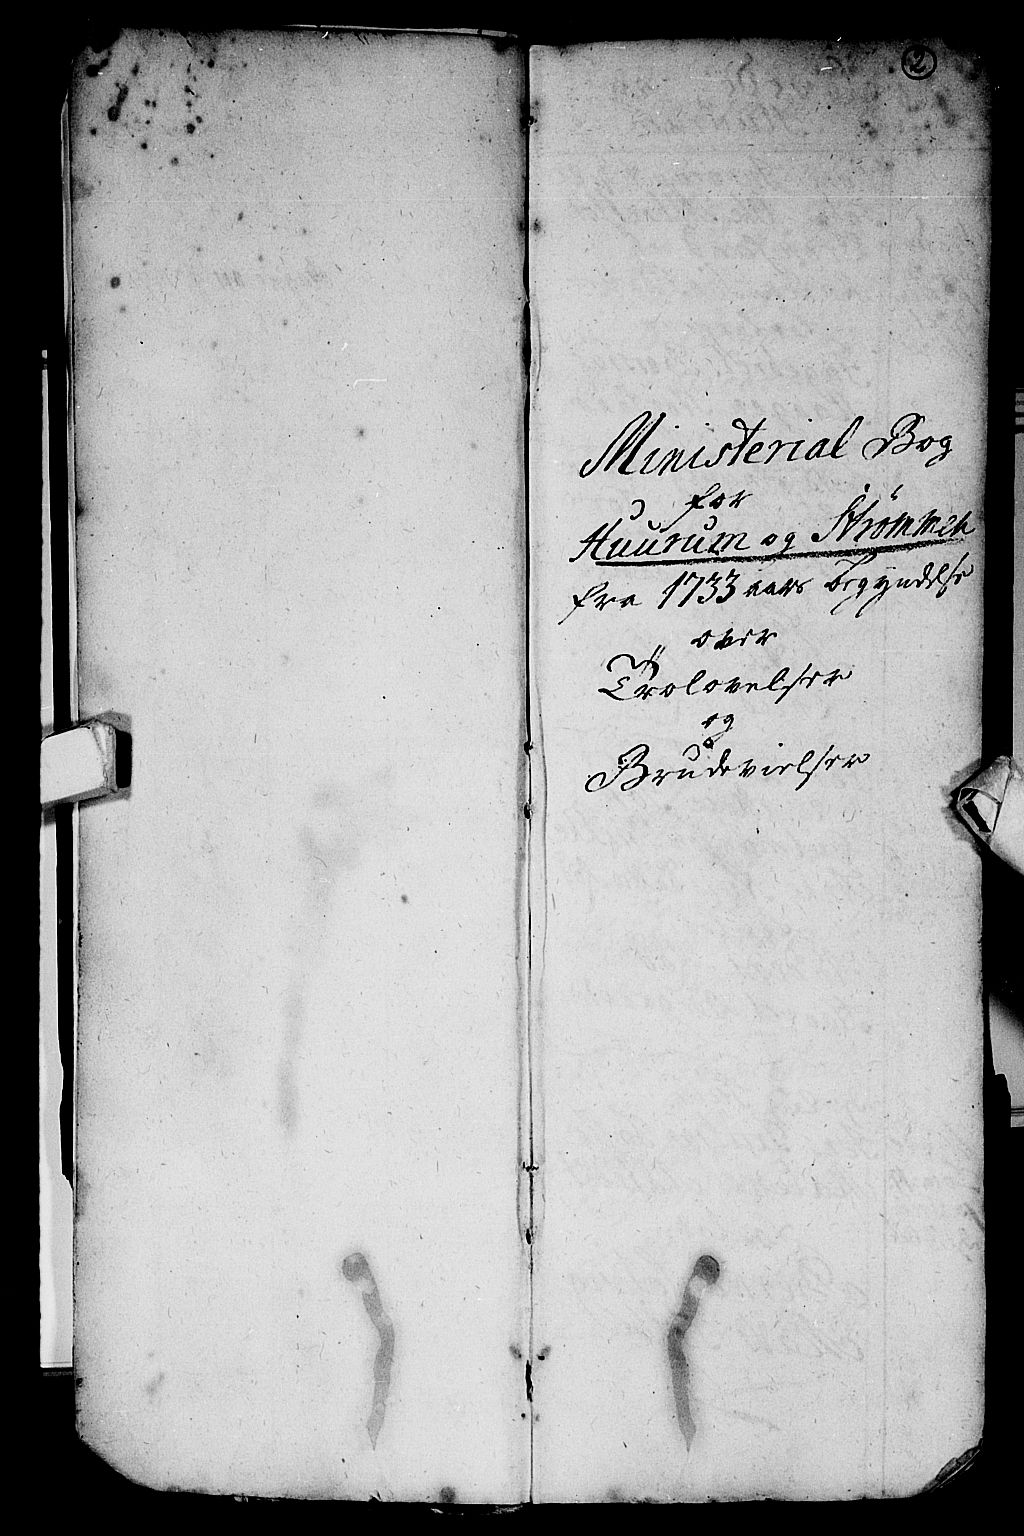 2
Ministerial Bog
for
Huurum og Strømmen
fra 1733 aars begyndelse
over
Trolovelser
og
Brudevielser